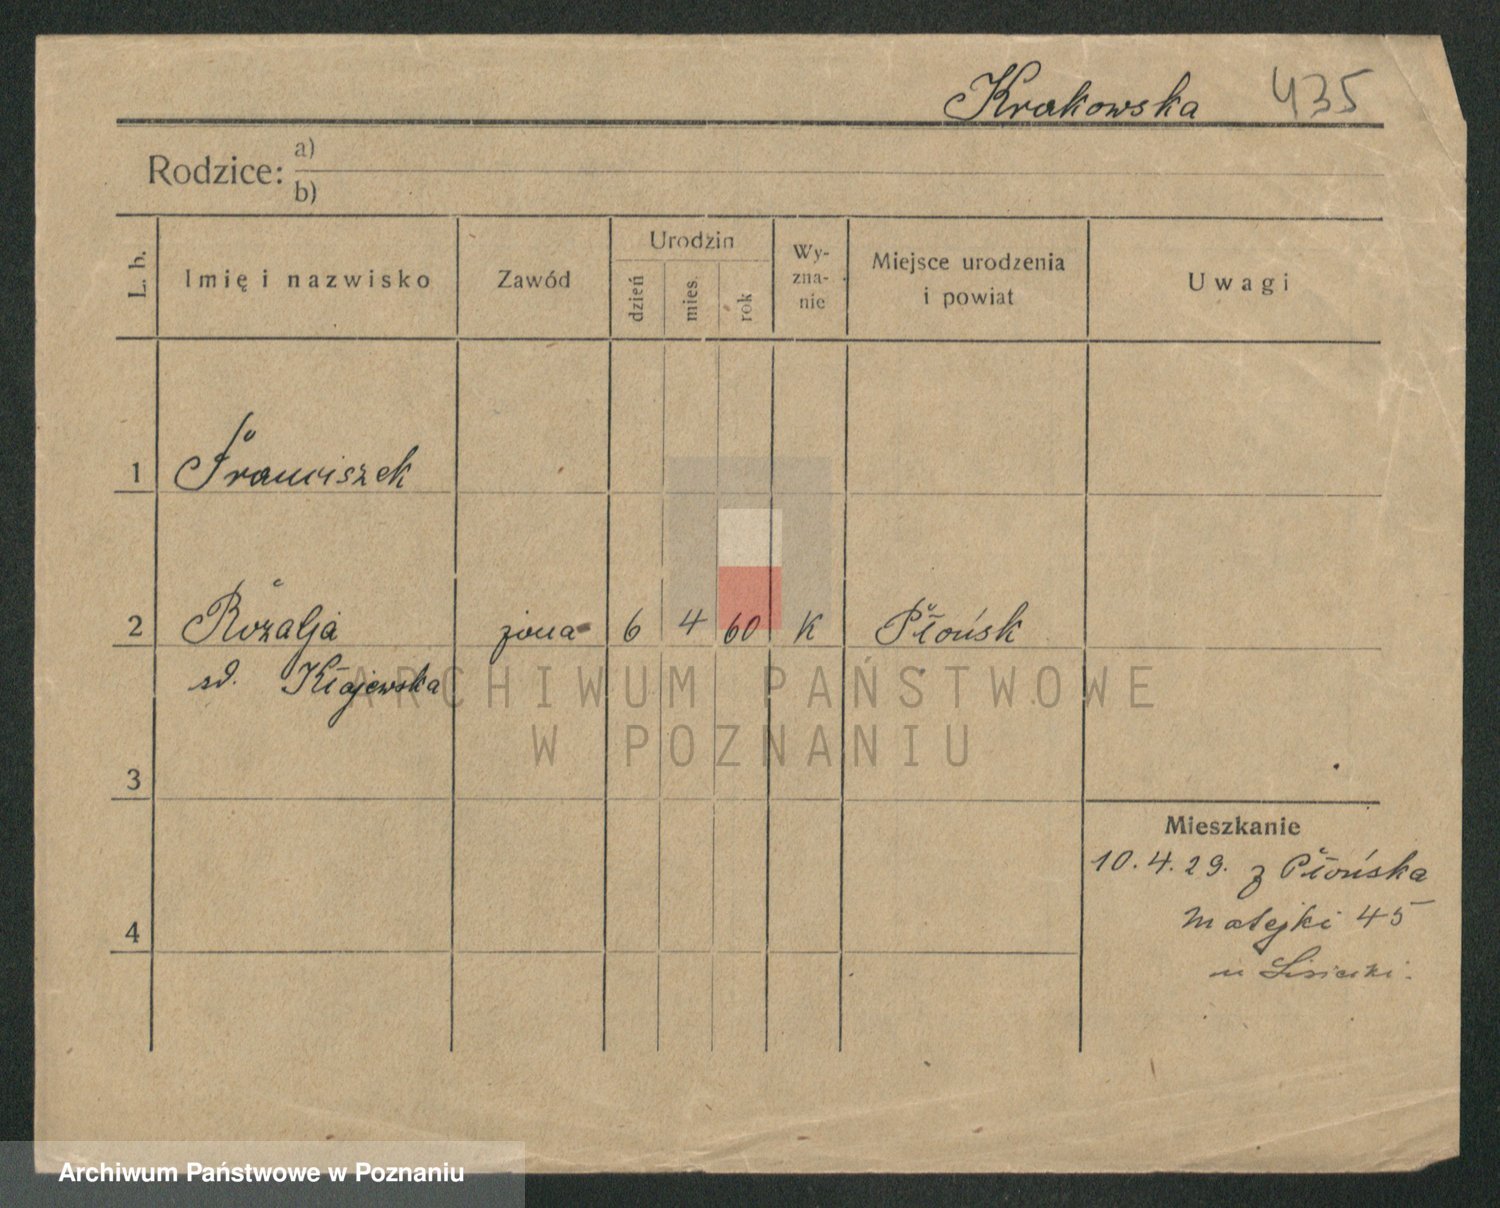 Krakowska 435
Rodzice: a)
b)
L. b. Imię i nazwisko Zawód Urodzin dzień mies. rok Wy-zna-nie Miejsce urodzenia i powiat Uwagi
1 Franciszek
2 Rozalja żona 6 4 60 K Płońsk
Kłajewska
3
Mieszkanie
10.4.29. z Płońska
4
Matejki 45
ARCHIWUM PAŃSTWOWE
W POZNANIU
Archiwum Państwowe w Poznaniu